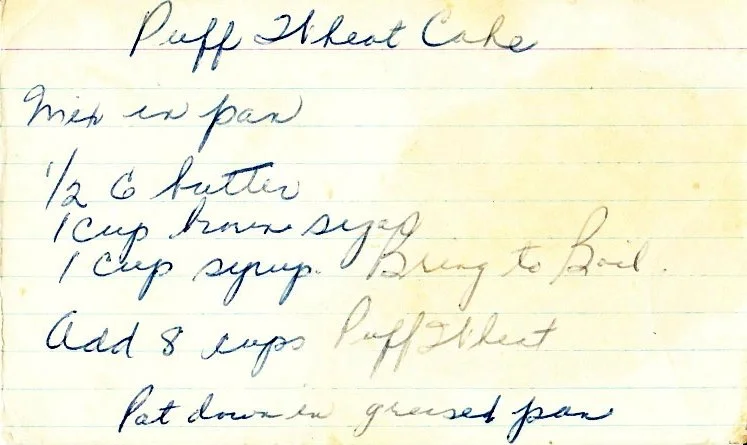 Puff Wheat Cake
Mix in pan
1/2 C butter
1 cup brown sugar
1 cup syrup. Bring to Boil.
Add 8 cups Puff Wheat
Pat down in greased pan